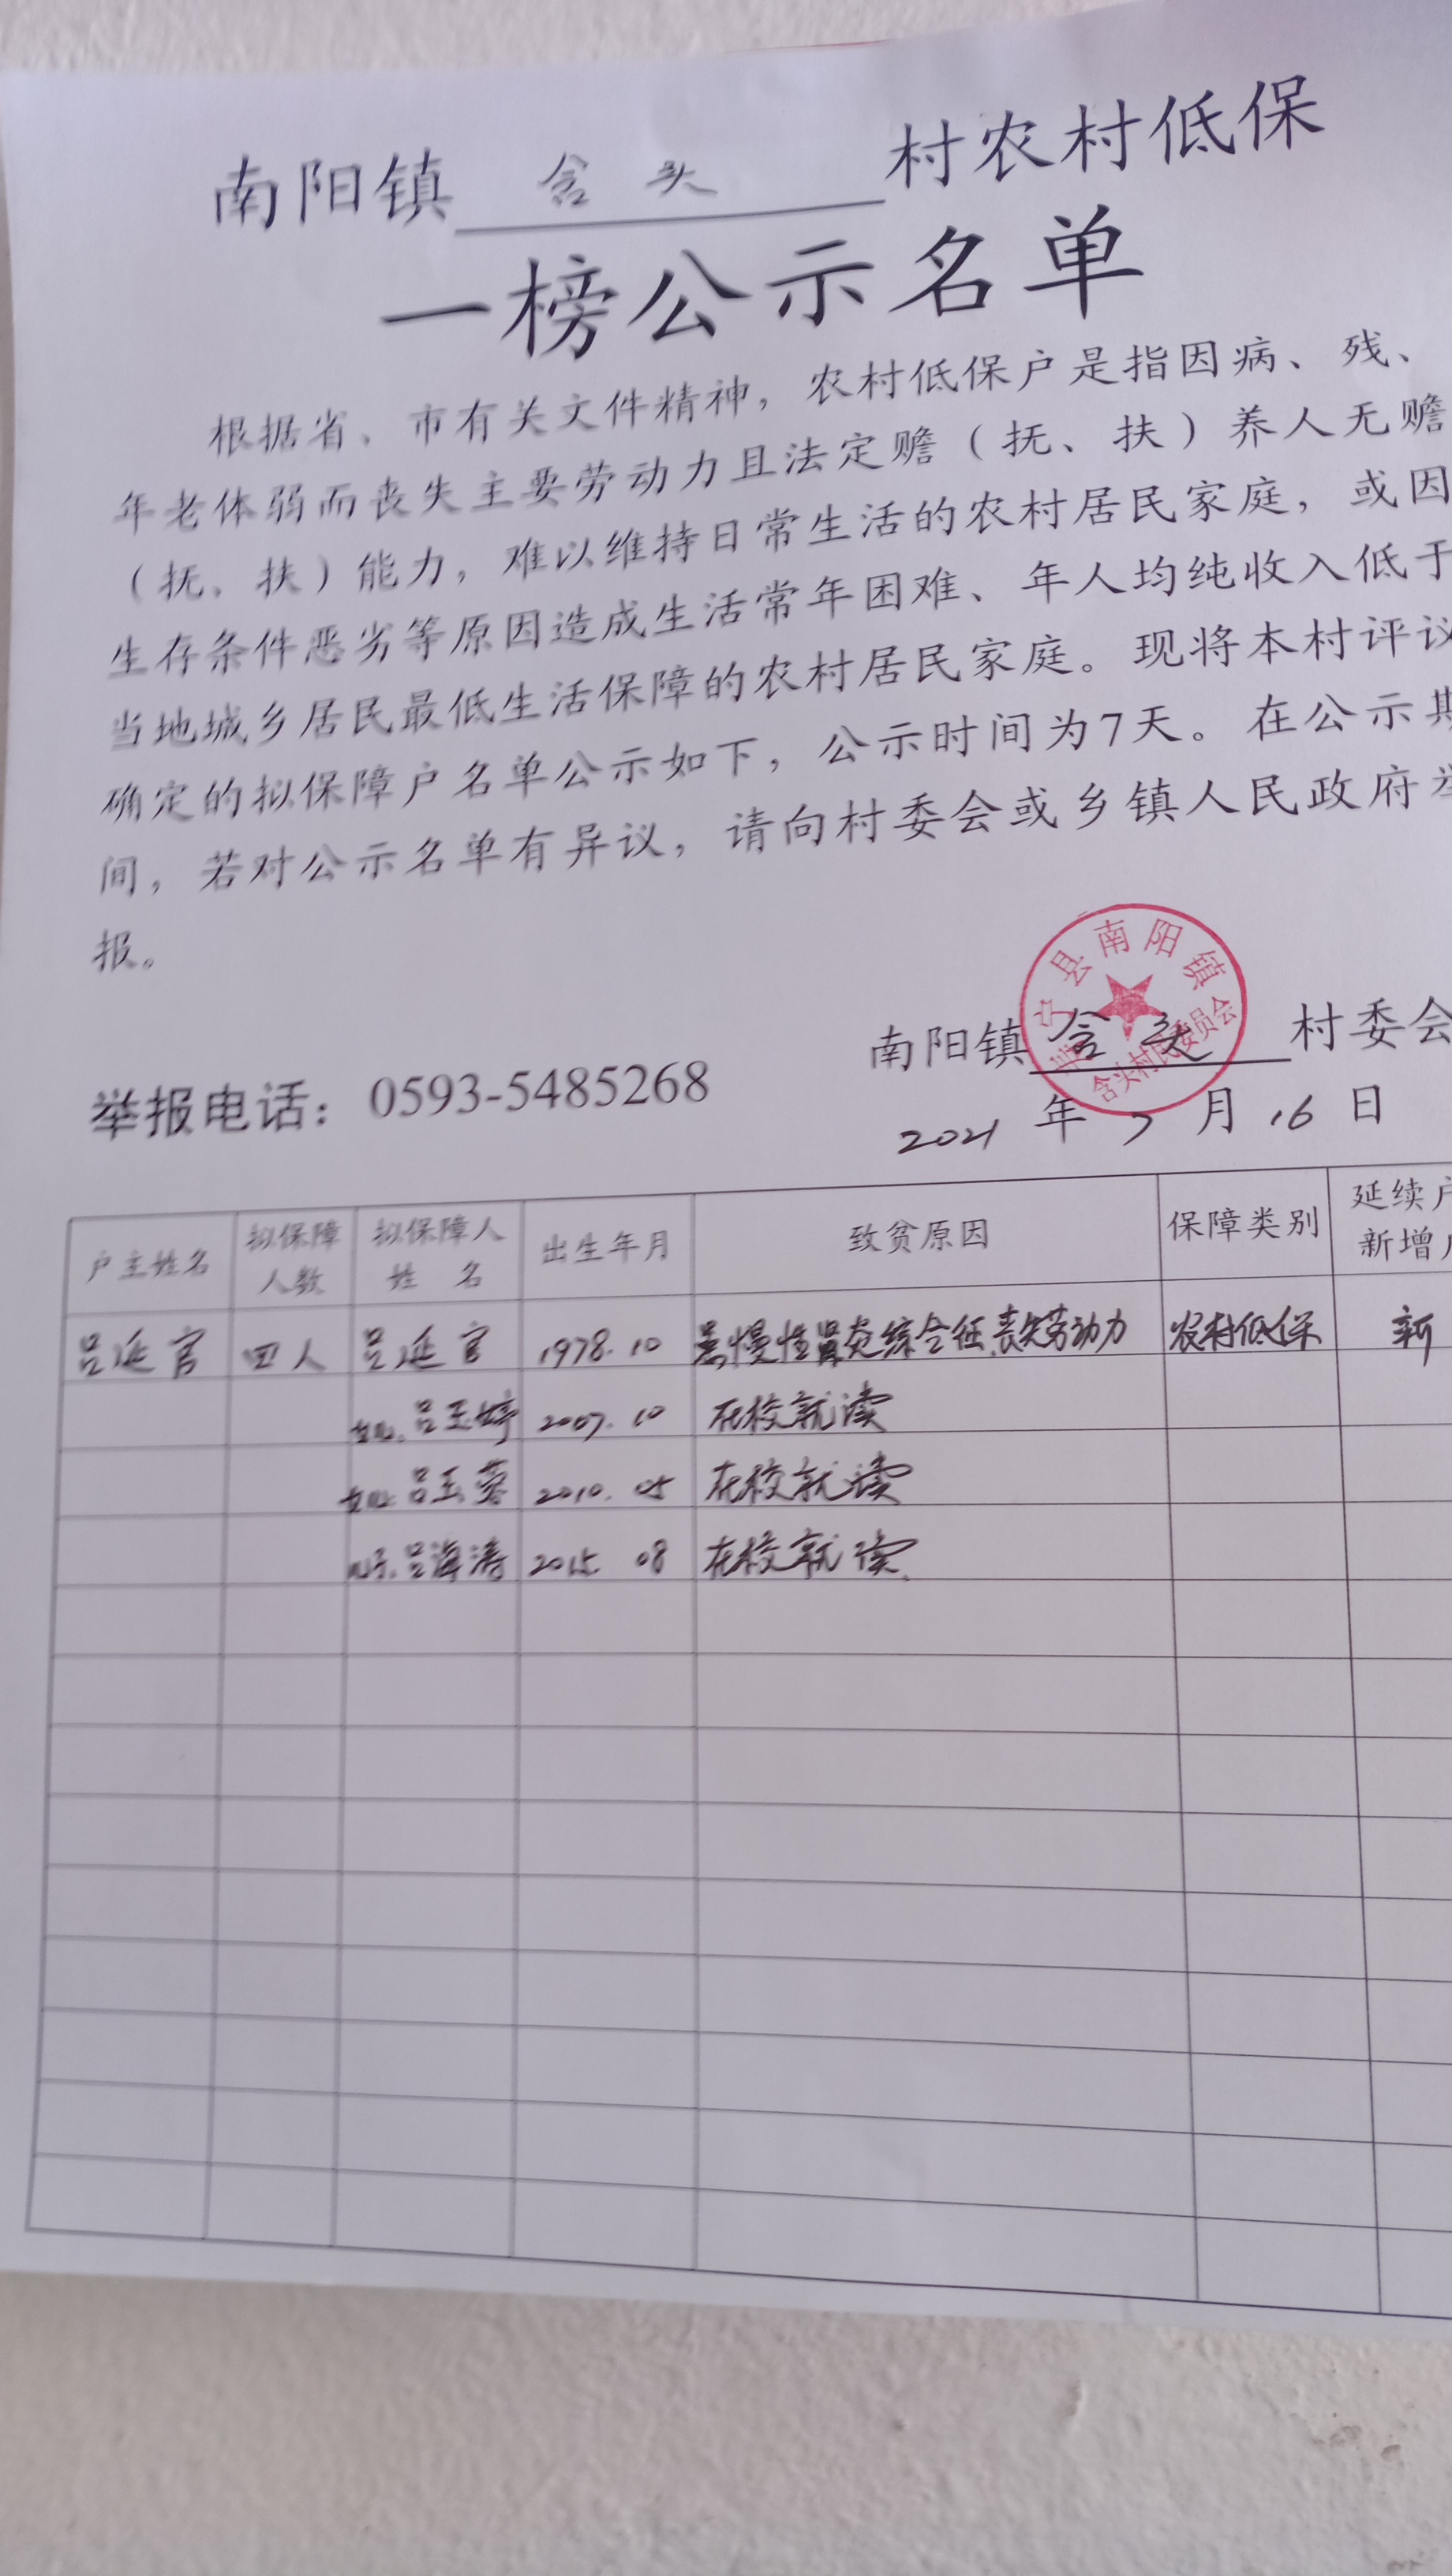 南阳镇 含头 村农村低保
一榜公示名单
根据省、市有关文件精神，农村低保户是指因病、残、
年老体弱而丧失主要劳动力且法定赡（抚、扶）养人无赡
（抚、扶）能力，难以维持日常生活的农村居民家庭，或因
生存条件恶劣等原因造成生活常年困难、年人均纯收入低于
当地城乡居民最低生活保障的农村居民家庭。现将本村评议
确定的拟保障户名单公示如下，公示时间为7天。在公示期
间，若对公示名单有异议，请向村委会或乡镇人民政府举
报。
寿宁县南阳镇
含头村民委员会
南阳镇 含头 村委会
举报电话：0593-5485268
2021 年 7 月 16 日
户主姓名 拟保障人数 拟保障人姓名 出生年月 致贫原因 保障类别 延续户 新增户
吕延官 四人 吕延官 1978.10 患慢性肾炎综合征.丧失劳动力 农村低保 新
女儿.吕玉婷 2007.10 在校就读
女儿.吕玉蓉 2010.05 在校就读
儿子.吕海涛 2015.08 在校就读.